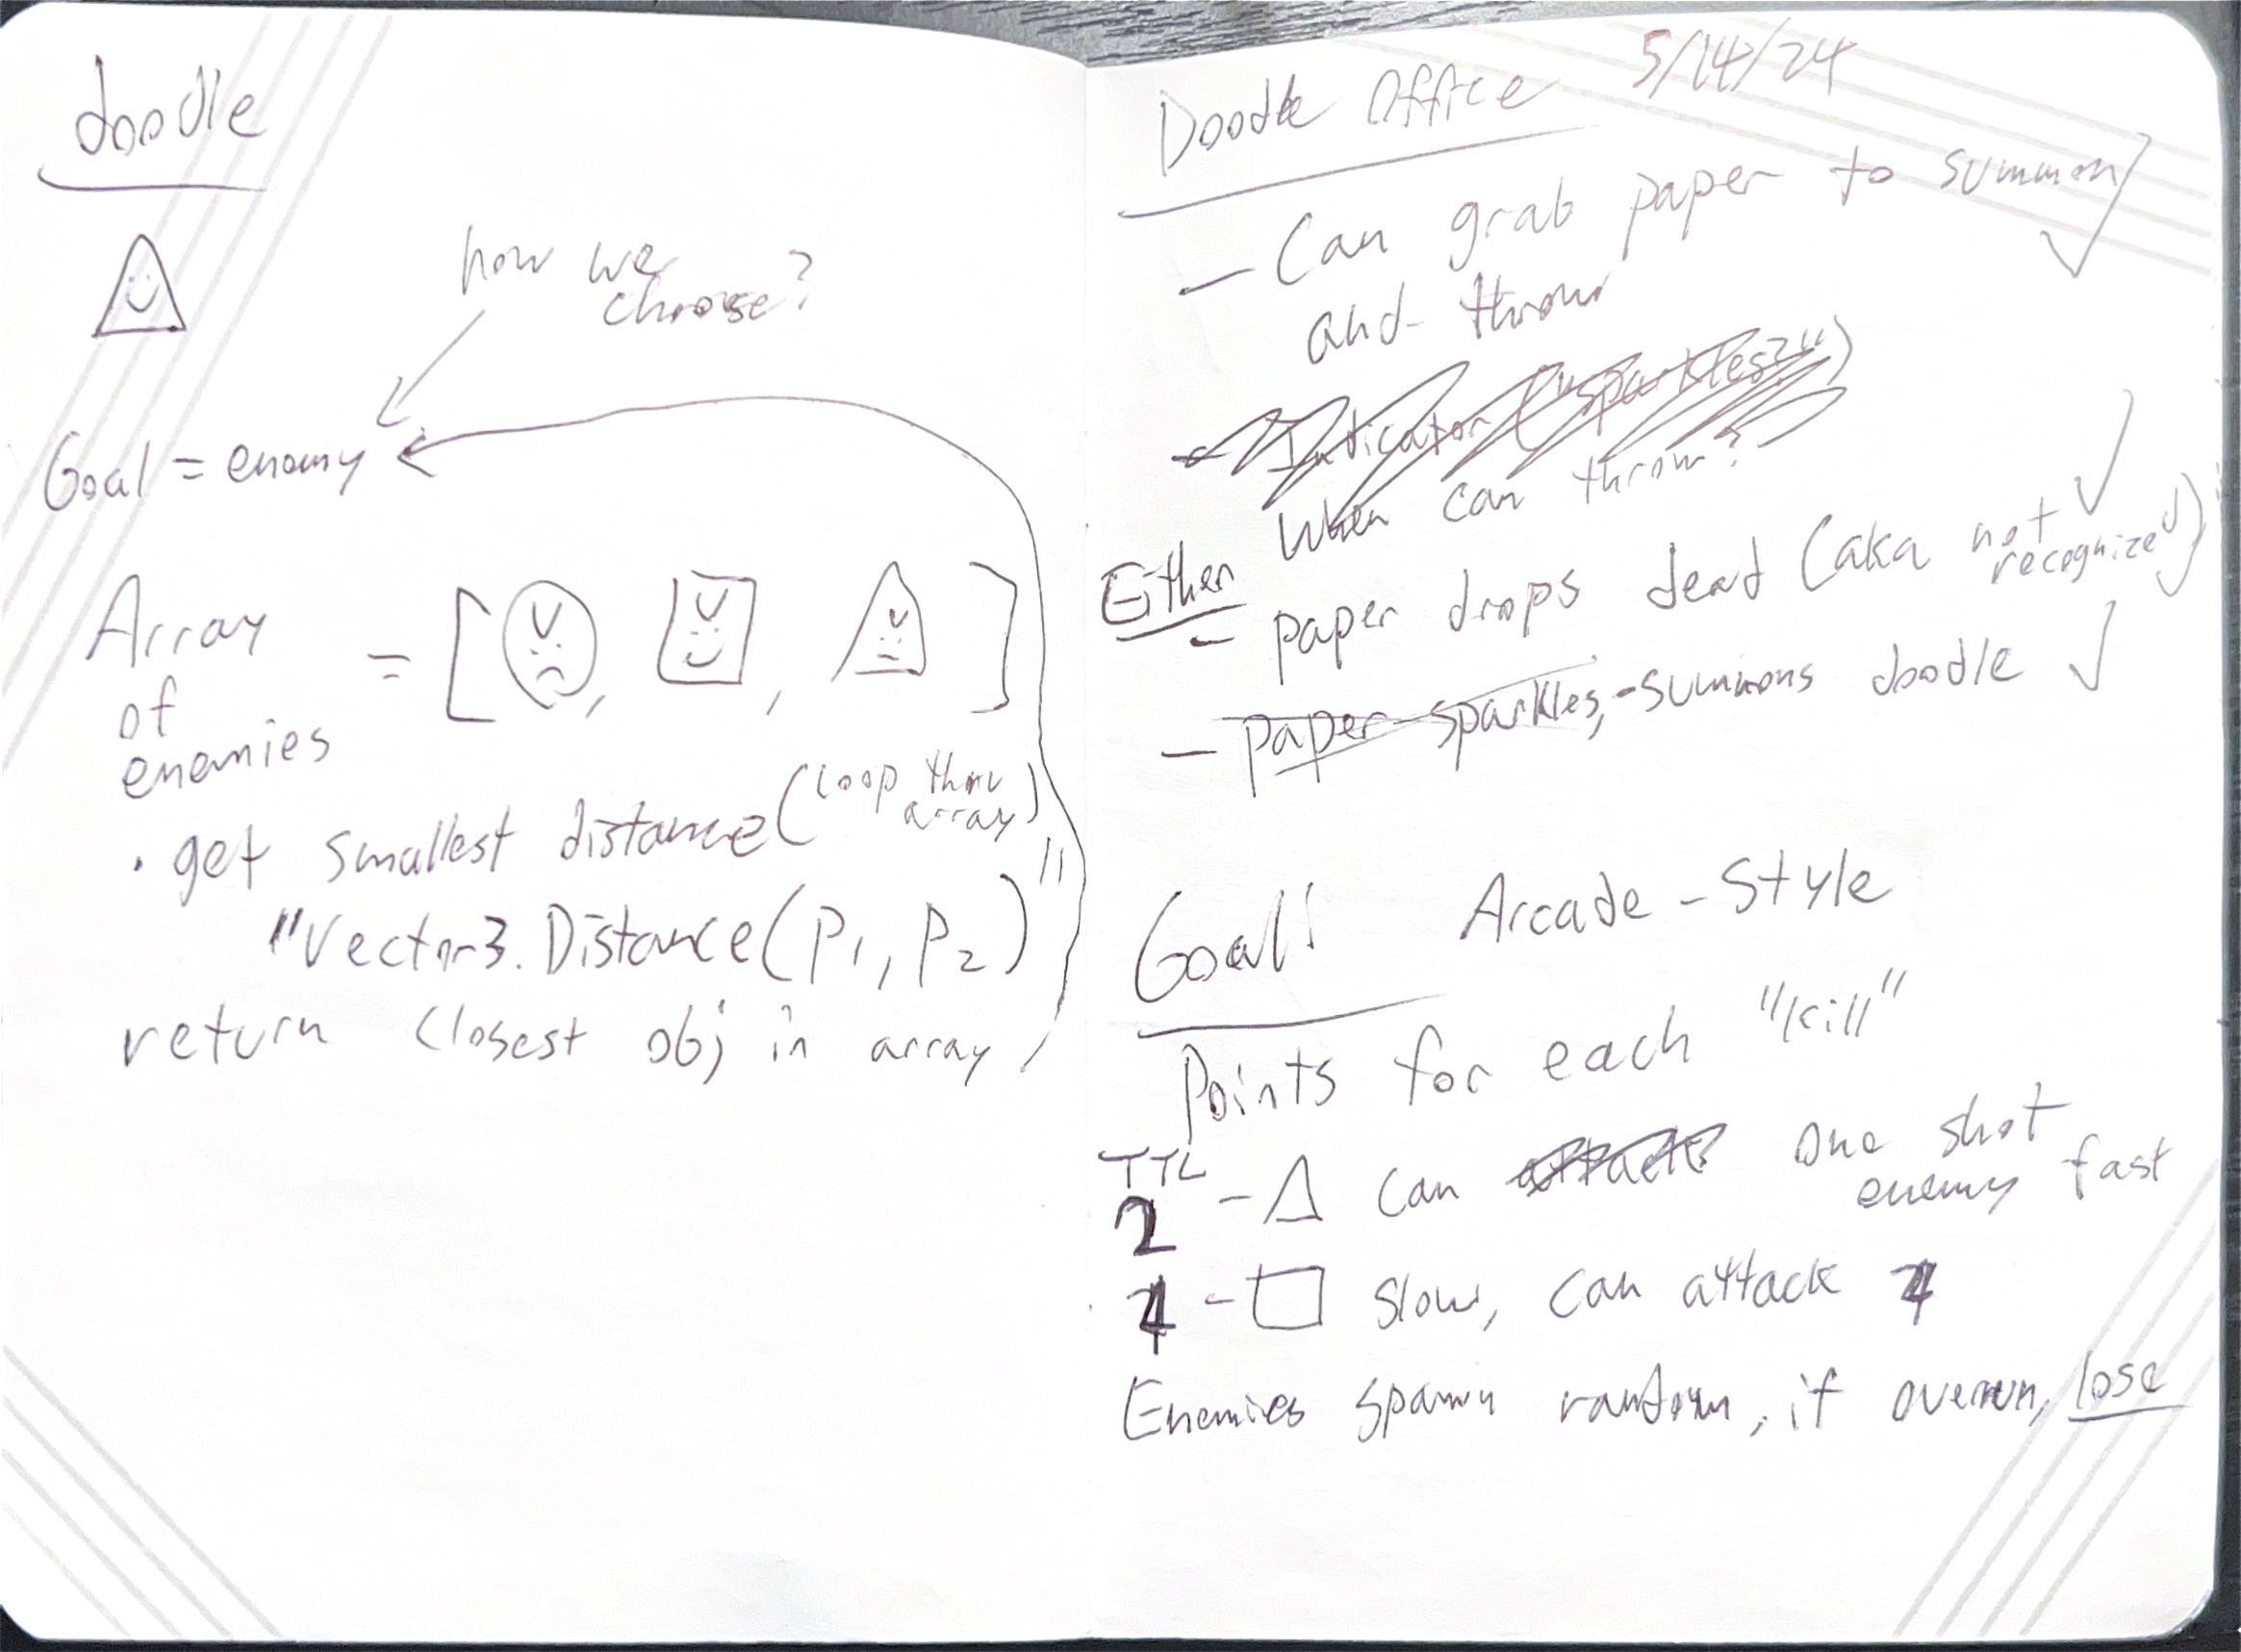 doodle
how we
choose?
Goal = enemy
Array
of
enemies
= [ , , ]
• get smallest distance (loop thru
array)
"Vector3.Distance(P1, P2)"
return closest obj in array
Doodle Office 5/14/24
- Can grab paper to summon
and throw
- Indicator ("sparkles?")
When can throw?
Either
- paper drops dead (aka not
recognized)
- paper sparkles, - summons doodle
Goal! Arcade-Style
Points for each "kill"
TTL
2 - △ can attack one shot
enemy fast
4 - □ slow, can attack 4
Enemies spawn random, if overrun, lose